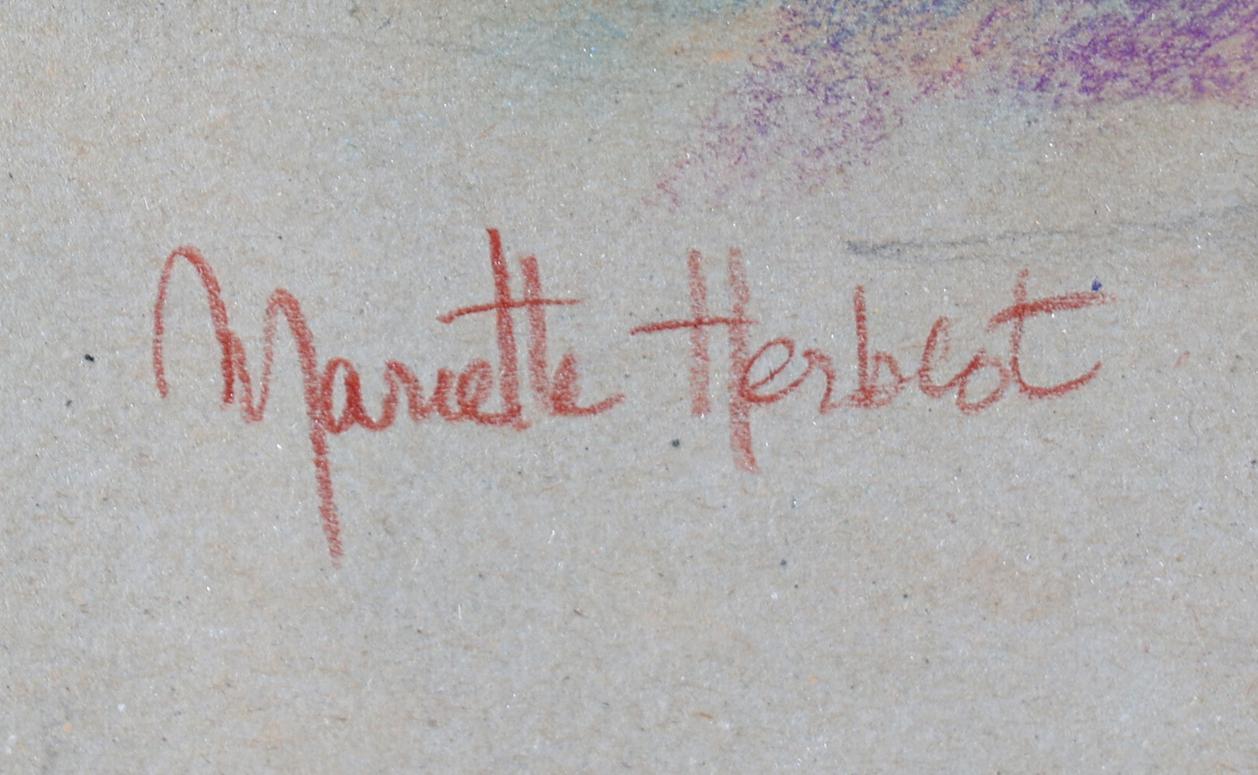 Mariette Herblot